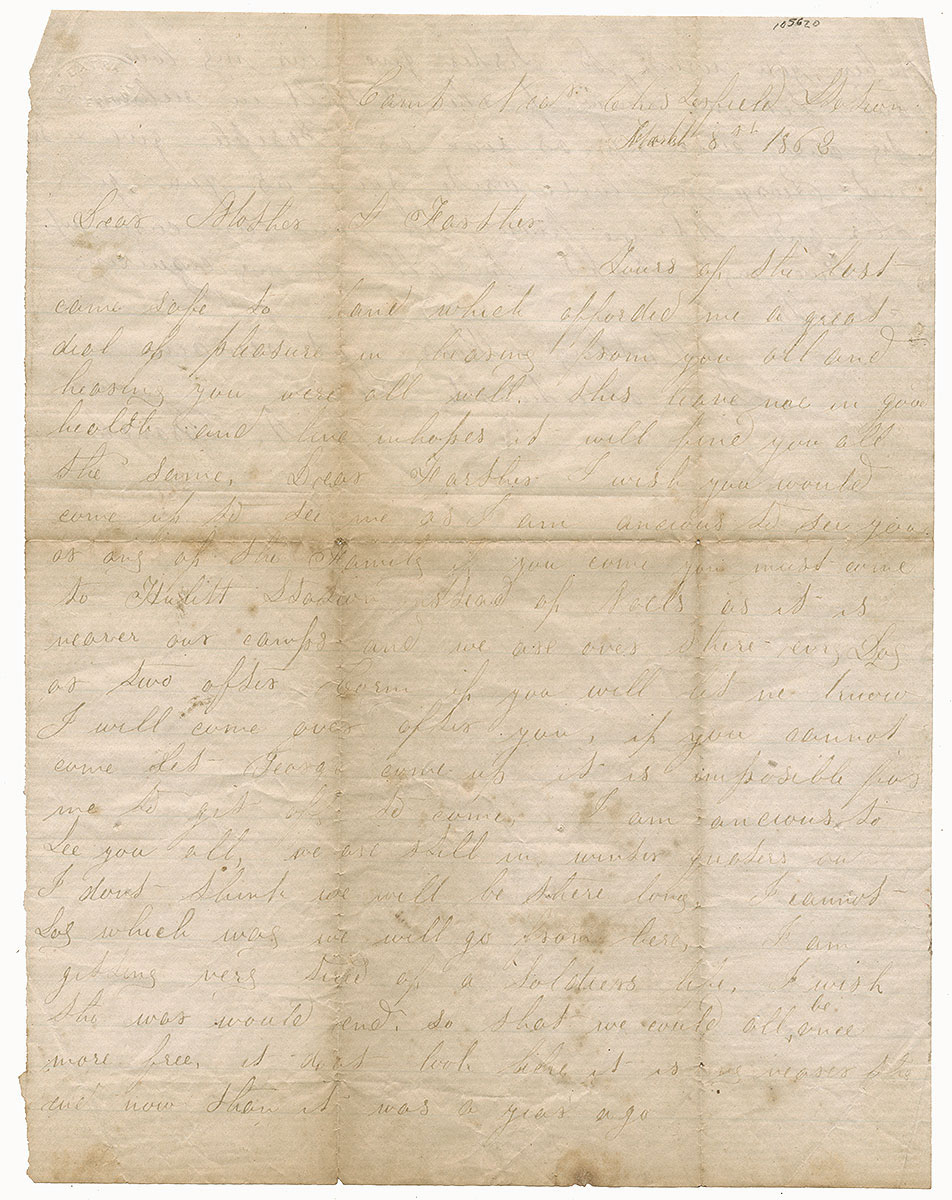 105620
Camp at Chesterfield Station
March 8th 1863
Dear Mother & Farther
Yours of the last
came safe to hand which afforded me a great
dial of pleasure in hearing from you all and
hearing you were all well. this leave me in good
health and hopes it will find you all
the same, Dear Farther I wish you would
come up to see me as I am ancious to see you
or any of the Family if you come you must come
to Hulitt Station istead of Noels as it is
nearer our camps and we are over there evry Day
or two after Corn if you will let me know
I will come over after you, if you cannot
come let George come up it is imposible for
me to git to come, I am ancious to
See you all, we are still in winter quaters
I dont think we will be there long. I cannot
Say which way we will go from here, I am
giting very tired of a Soldiers life, I wish
the war would end, so that we could all be once
more free, it dont look like it is no nearer the
end now than it was a year ago